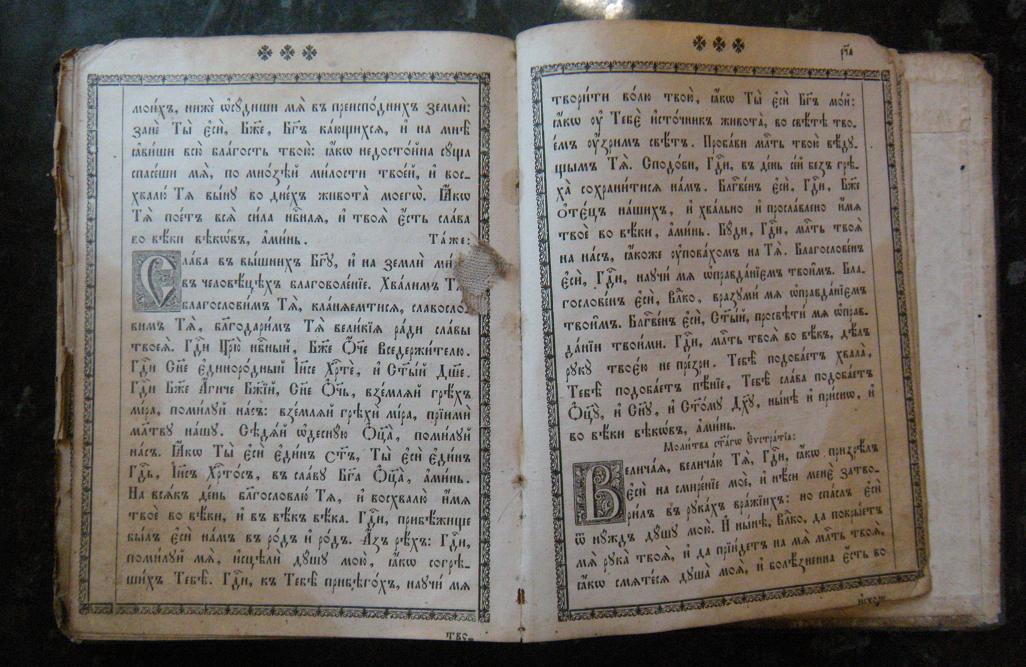 мои́хъ, нижѐ ѡ҆сꙋ́диши мѧ̀ въ преиспо́днихъ землѝ:
занѐ Ты̀ є҆сѝ, Бж҃е, Бг҃ъ ка́ющихсѧ, и҆ на мнѣ̀
ꙗ҆ви́ши всю̀ бла́гость твою̀: ꙗ҆́кѡ недосто́йна сꙋ́ща
спасе́ши мѧ̀, по мно́зѣй ми́лости твое́й, и҆ вос-
хвалю̀ Тѧ̀ вы́нꙋ во дне́хъ живота̀ моегѡ̀. Ꙗ҆́кѡ
Тѧ̀ пое́тъ всѧ̀ си́ла нбⷭ҇наѧ, и҆ твоѧ̀ є҆́сть сла́ва
во вѣ́ки вѣкѡ́въ, а҆ми́нь. Та́же:
Сла́ва въ вы́шнихъ Бг҃ꙋ, и҆ на землѝ
въ человѣ́цѣхъ благоволе́нїе. Хва́лимъ
благослови́мъ Тѧ̀, кла́нѧемтисѧ, славосло-
вимъ Тѧ̀, благодари́мъ Тѧ̀ вели́кїѧ ра́ди сла́вы
твоеѧ̀. Гдⷭ҇и Цр҃ю̀ нбⷭ҇ный, Бж҃е Ѻ҆́ч҃е Вседержи́телю.
Гдⷭ҇и Сн҃е є҆диноро́дный І҆и҃се Хрⷭ҇тѐ, и҆ Ст҃ы́й Дш҃е.
Гдⷭ҇и Бж҃е А҆́гнче Бж҃їй, Сн҃е Ѻ҆́ч҃ь, взе́млѧй грѣ́хъ
мі́ра, поми́лꙋй на́съ: взе́млѧй грѣхѝ мі́ра, прїимѝ
мл҃твꙋ на́шꙋ. Сѣдѧ́й ѡ҆деснꙋ́ю Ѻ҆ц҃а̀, поми́лꙋй
на́съ. Ꙗ҆́кѡ Ты̀ є҆сѝ є҆ди́нъ ст҃ъ, Ты̀ є҆сѝ є҆ди́нъ
Гдⷭ҇ь, І҆и҃съ Хрⷭ҇то́съ, въ сла́вꙋ Бг҃а Ѻ҆ц҃а̀, а҆ми́нь.
На всѧ́къ де́нь благословлю̀ Тѧ̀, и҆ восхвалю̀ и҆́мѧ
твоѐ во вѣ́ки, и҆ въ вѣ́къ вѣ́ка. Гдⷭ҇и, прибѣ́жище
бы́лъ є҆сѝ на́мъ въ ро́дъ и҆ ро́дъ. А҆́зъ рѣ́хъ: Гдⷭ҇и,
поми́лꙋй мѧ̀, и҆сцѣлѝ дꙋ́шꙋ мою̀, ꙗ҆́кѡ согрѣ-
ши́хъ Тебѣ̀. Гдⷭ҇и, къ Тебѣ̀ прибѣго́хъ, наꙋчи́ мѧ
тво-
рн҃а
твори́ти во́лю твою̀, ꙗ҆́кѡ Ты̀ є҆сѝ Бг҃ъ мо́й:
ꙗ҆́кѡ ᲂу҆ Тебє̀ и҆сто́чникъ живота̀, во свѣ́тѣ тво-
е́мъ ᲂу҆́зримъ свѣ́тъ. Проба́ви мл҃ть твою̀ вѣ́дꙋ-
щымъ Тѧ̀. Сподо́би, Гдⷭ҇и, въ де́нь се́й безъ грѣ-
ха̀ сохрани́тисѧ на́мъ. Блгⷭ҇ве́нъ є҆сѝ, Гдⷭ҇и, Бж҃е
ѻ҆те́цъ на́шихъ, и҆ хва́льно и҆ просла́влено и҆́мѧ
твоѐ во вѣ́ки, а҆ми́нь. Бꙋ́ди, Гдⷭ҇и, мл҃ть твоѧ̀
на на́съ, ꙗ҆́коже ᲂу҆пова́хомъ на Тѧ̀. Благослове́нъ
є҆сѝ, Гдⷭ҇и, наꙋчи́ мѧ ѡ҆правда́нїемъ твои̑мъ. Бла-
гослове́нъ є҆сѝ, Влⷣко, вразꙋми́ мѧ ѡ҆правда́нїемъ
твои̑мъ. Блгⷭ҇ве́нъ є҆сѝ, Ст҃ы́й, просвѣти́ мѧ ѡ҆прав-
да́нїи твои́ми. Гдⷭ҇и, мл҃ть твоѧ̀ во вѣ́къ, дѣ́лъ
рꙋкꙋ̀ твоє́ю не пре́зри. Тебѣ̀ подоба́етъ хвала̀,
Тебѣ̀ подоба́етъ пѣ́нїе, Тебѣ̀ сла́ва подоба́етъ
Ѻ҆ц҃ꙋ̀, и҆ Сн҃ꙋ, и҆ Ст҃о́мꙋ Дх҃ꙋ, ны́нѣ и҆ при́снѡ, и҆
во вѣ́ки вѣкѡ́въ, а҆ми́нь.
Моли́тва ст҃а́гѡ Еѵстра́тїа:
Велича́ѧ, велича́ю Тѧ̀, Гдⷭ҇и, ꙗ҆́кѡ призрѣ́лъ
є҆сѝ на смире́нїе моѐ, и҆ нѣ́си менѐ затво-
ри́лъ въ рꙋка́хъ вра́жїихъ: но спа́слъ є҆сѝ
ѿ нꙋ́ждъ дꙋ́шꙋ мою̀. И҆ ны́нѣ, Влⷣко, да покры́етъ
мѧ̀ рꙋка̀ твоѧ̀, и҆ да прїи́детъ на мѧ̀ мл҃ть твоѧ̀,
ꙗ҆́кѡ смѧте́сѧ дꙋша̀ моѧ̀, и҆ болѣ́зненна є҆́сть во